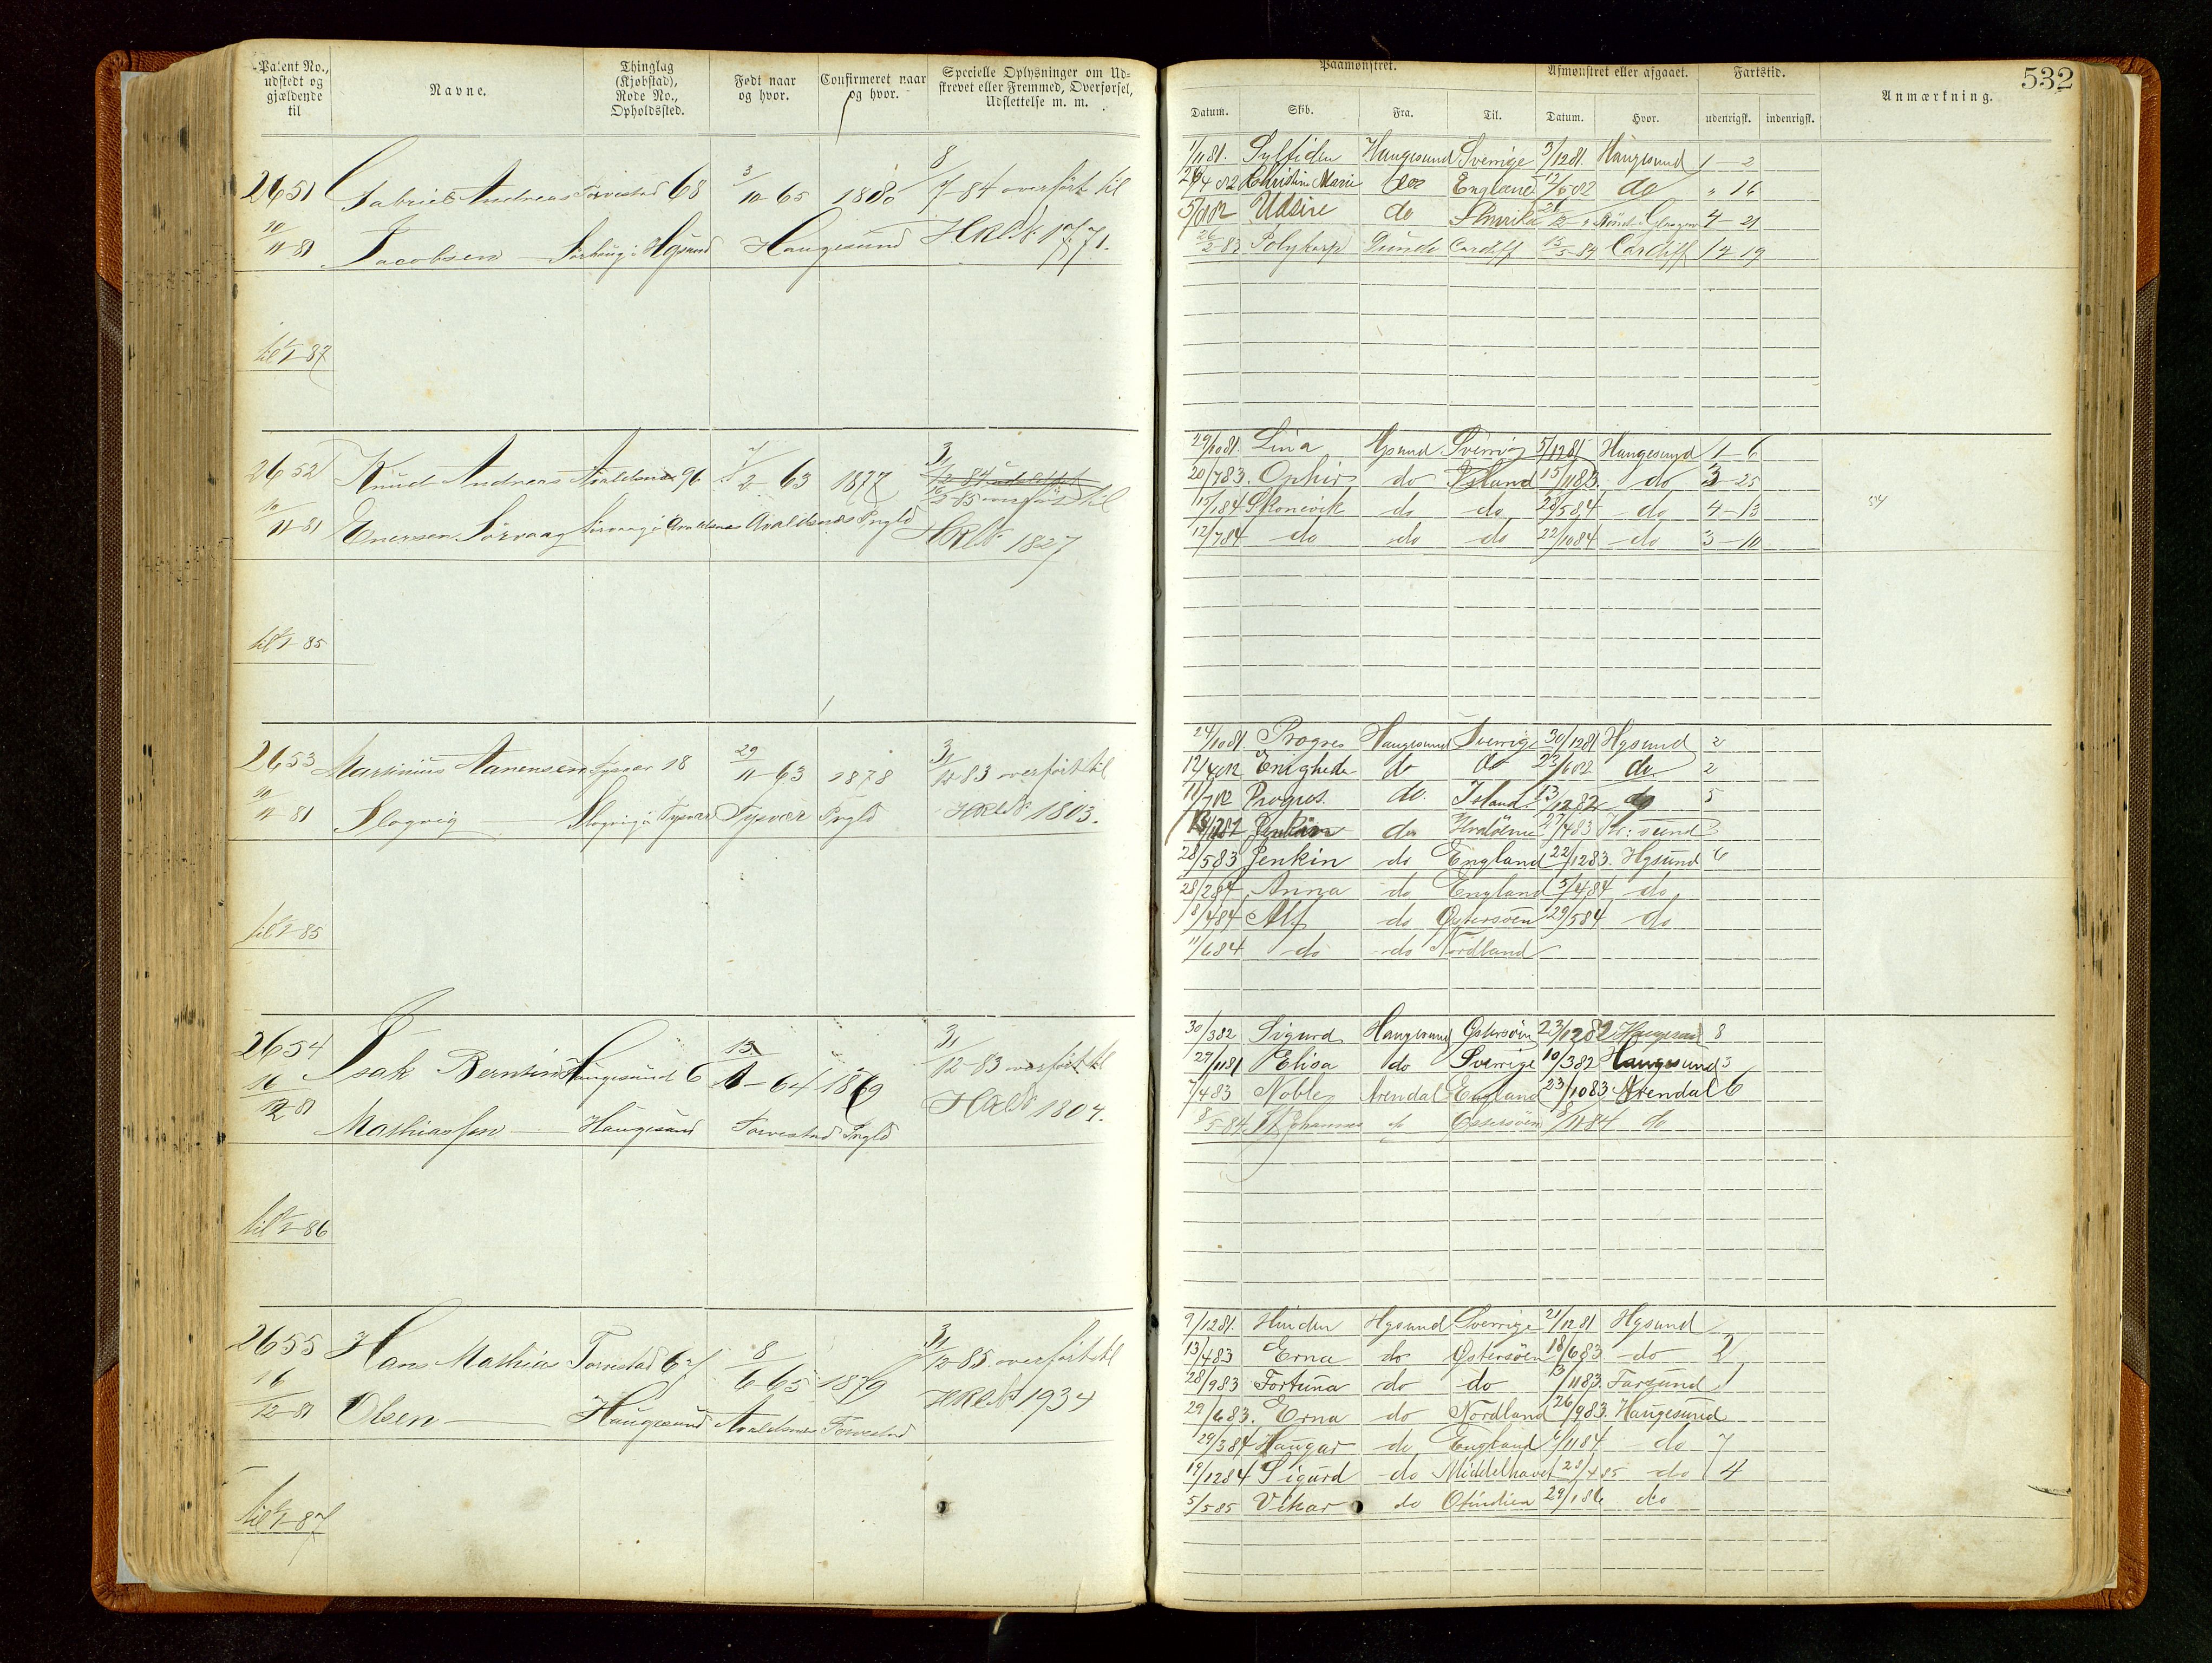 532
Patent No., udstedt og gjældende til
Navne.
Thinglag (Kjøbstad), Rode No., Opholdssted.
Født naar og hvor.
Confirmeret naar og hvor.
Specielle Oplysninger om Udskrevet eller Fremmed, Overførsel, Udslettelse m. m.
Paamønstret.
Afmønstret eller afgaaet.
Fartstid.
Anmærkning.
Datum. Skib. Fra. Til. Datum. Hvor. udenrigsk. indenrigsk.
2651 Gabriel Andreas Torvestad 68 3/10-65 1880 8/7-84 overført til
10/11-81 Jacobsen Hgsund Haugesund
til 1/1-87
1/11 81. Sylfiden Haugesund Sverrige 3/12 81. Haugesund 1-2
Christine Marie England do " 16
Udsire do Amrika 4-21
26/2-83 Polykarp Cardiff 15/5-84 Cardiff 14-19
2652 Knud Andreas Avaldsnes 96 2-63 1877 31/12-84 udslettet
overført til
10/11-81 Enersen Sörvaag Sörvaag i Avaldsnes Avaldsnæs Prgld HRLN 1827
til 1/1-85
29/10 81. Lina Hgsund Sverrig 5/12 81 Haugesund 1-6
20/7 83. Ophir do Island 15/11 83. do 3-25
15/1 84 Skonevik do do 28/5 84 do 4-13
54
12/7 84 do do do 22/10 84 do 3-10
2653 Martinius Aanensen Tysvær 18 29/11-63 1878 31/12-83 overført til
10/11-81 Slogvig Slogvig i Tysvær Tysvær Prgld HRLN 1803.
til 1/1-85
24/10 81. Progres Haugesund Sverrige 30/12 81 Hgsund 2
12/4 82 Enighede do do 23/6 82 do 2
11/7 82 Progres. do. Island 13/12 82 do 5
do Kr:sund 3
28/5 83 Jenkin do England 22/12 83. Hgsund 6
28/2 84 Anna do England 5/4 84 do
18/4 84 Alf do Østersöen 29/5 84 do
11/6 84 do do Nordland
2654 Isak Berntin Haugesund 6 13/1-64 1879 31/12-83 overført til
16/12-81 Mathiassen Haugesund Torvestad Prgld HRLN 1804.
til 1/1-86
30/3 82 Sigurd Haugesund Østersöen 23/12 82 Haugesund 8
29/11 81 Elisa do Sverrige 10/3 82 Haugesund 3
7/4 83 Noble Arendal England 23/10 83 Arendal 6
8/5-84 St Johannes do Østersöen 8/11 84 do
2655 Hans Mathia Torvestad 67 8/6-65 1879 31/12-85 overført til
16/12-81 Olsen Haugesund Avaldsnes Torvestad HRLN 1934
til 1/1-87
9/12 81. Hinden Hgsund Sverrige 21/12 81 Hgsund
13/4 83 Erna do Østersöen 18/6 83 do 2
28/9 83 Fortuna do do 3/11 83. Farsund 1
29/6 83. Erna do Nordland 26/9 83. Haugesund
29/3 84 Haugar do England 84 do 7
19/12 84 Sigurd do Middelhavet 28/4 85 do 4
5/5 85 Vikar do Ostindien 29/1 86 do